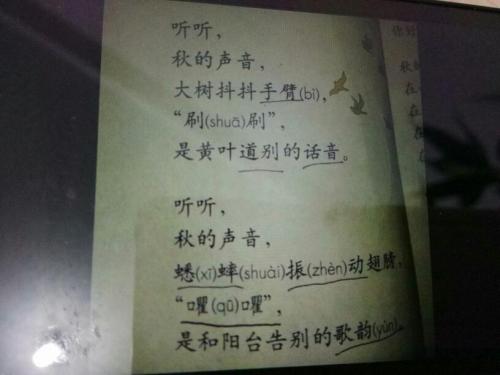 听听，
秋的声音，
大树抖抖手臂(bì)，
“刷(shuā)刷”，
是黄叶道别的话音。
听听，
秋的声音，
蟋(xī)蟀(shuài)振(zhèn)动翅膀，
“㘗(qū)㘗”，
是和阳台告别的歌韵(yùn)。